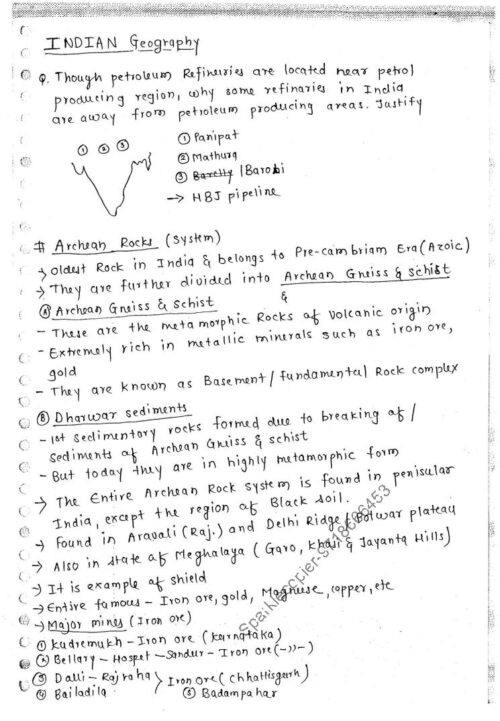 INDIAN Geography
Q. Though petroleum Refineries are located near petrol
producing region, why some refinaries in India
are away from petroleum producing areas. Justify
① ② ③
① Panipat
② Mathura
③ Bareily / Baroni
→ HBJ pipeline
# Archean Rocks (System)
→ oldest Rock in India & belongs to Pre-cambriam Era (Azoic)
→ They are further divided into Archean Gneiss & schist
&
Ⓐ Archean Gneiss & Schist
- These are the metamorphic Rocks of Volcanic origin
- Extremely rich in metallic minerals such as iron ore,
gold
- They are known as Basement / fundamental Rock complex
Ⓑ Dharwar sediments
- 1st sedimentory rocks formed due to breaking of /
sediments of Archean Gneiss & schist
- But today they are in highly metamorphic form
→ The Entire Archean Rock System is found in penisular
India, except the region of Black soil.
→ found in Aravali (Raj.) and Delhi Ridge / Potwar plateau
→ Also in state of Meghalaya (Garo, Khasi & Jayanta Hills)
→ It is example of shield
→ Entire famous - Iron ore, gold, Magnese, copper, etc
→ Major mines (Iron ore)
① Kudremukh - Iron ore (Karnataka)
② Bellary - Hospet - Sandur - Iron ore (-〃-)
③ Dalli - Rajraha > Iron ore (Chhattisgarh)
④ Bailadila ⑤ Badampahar